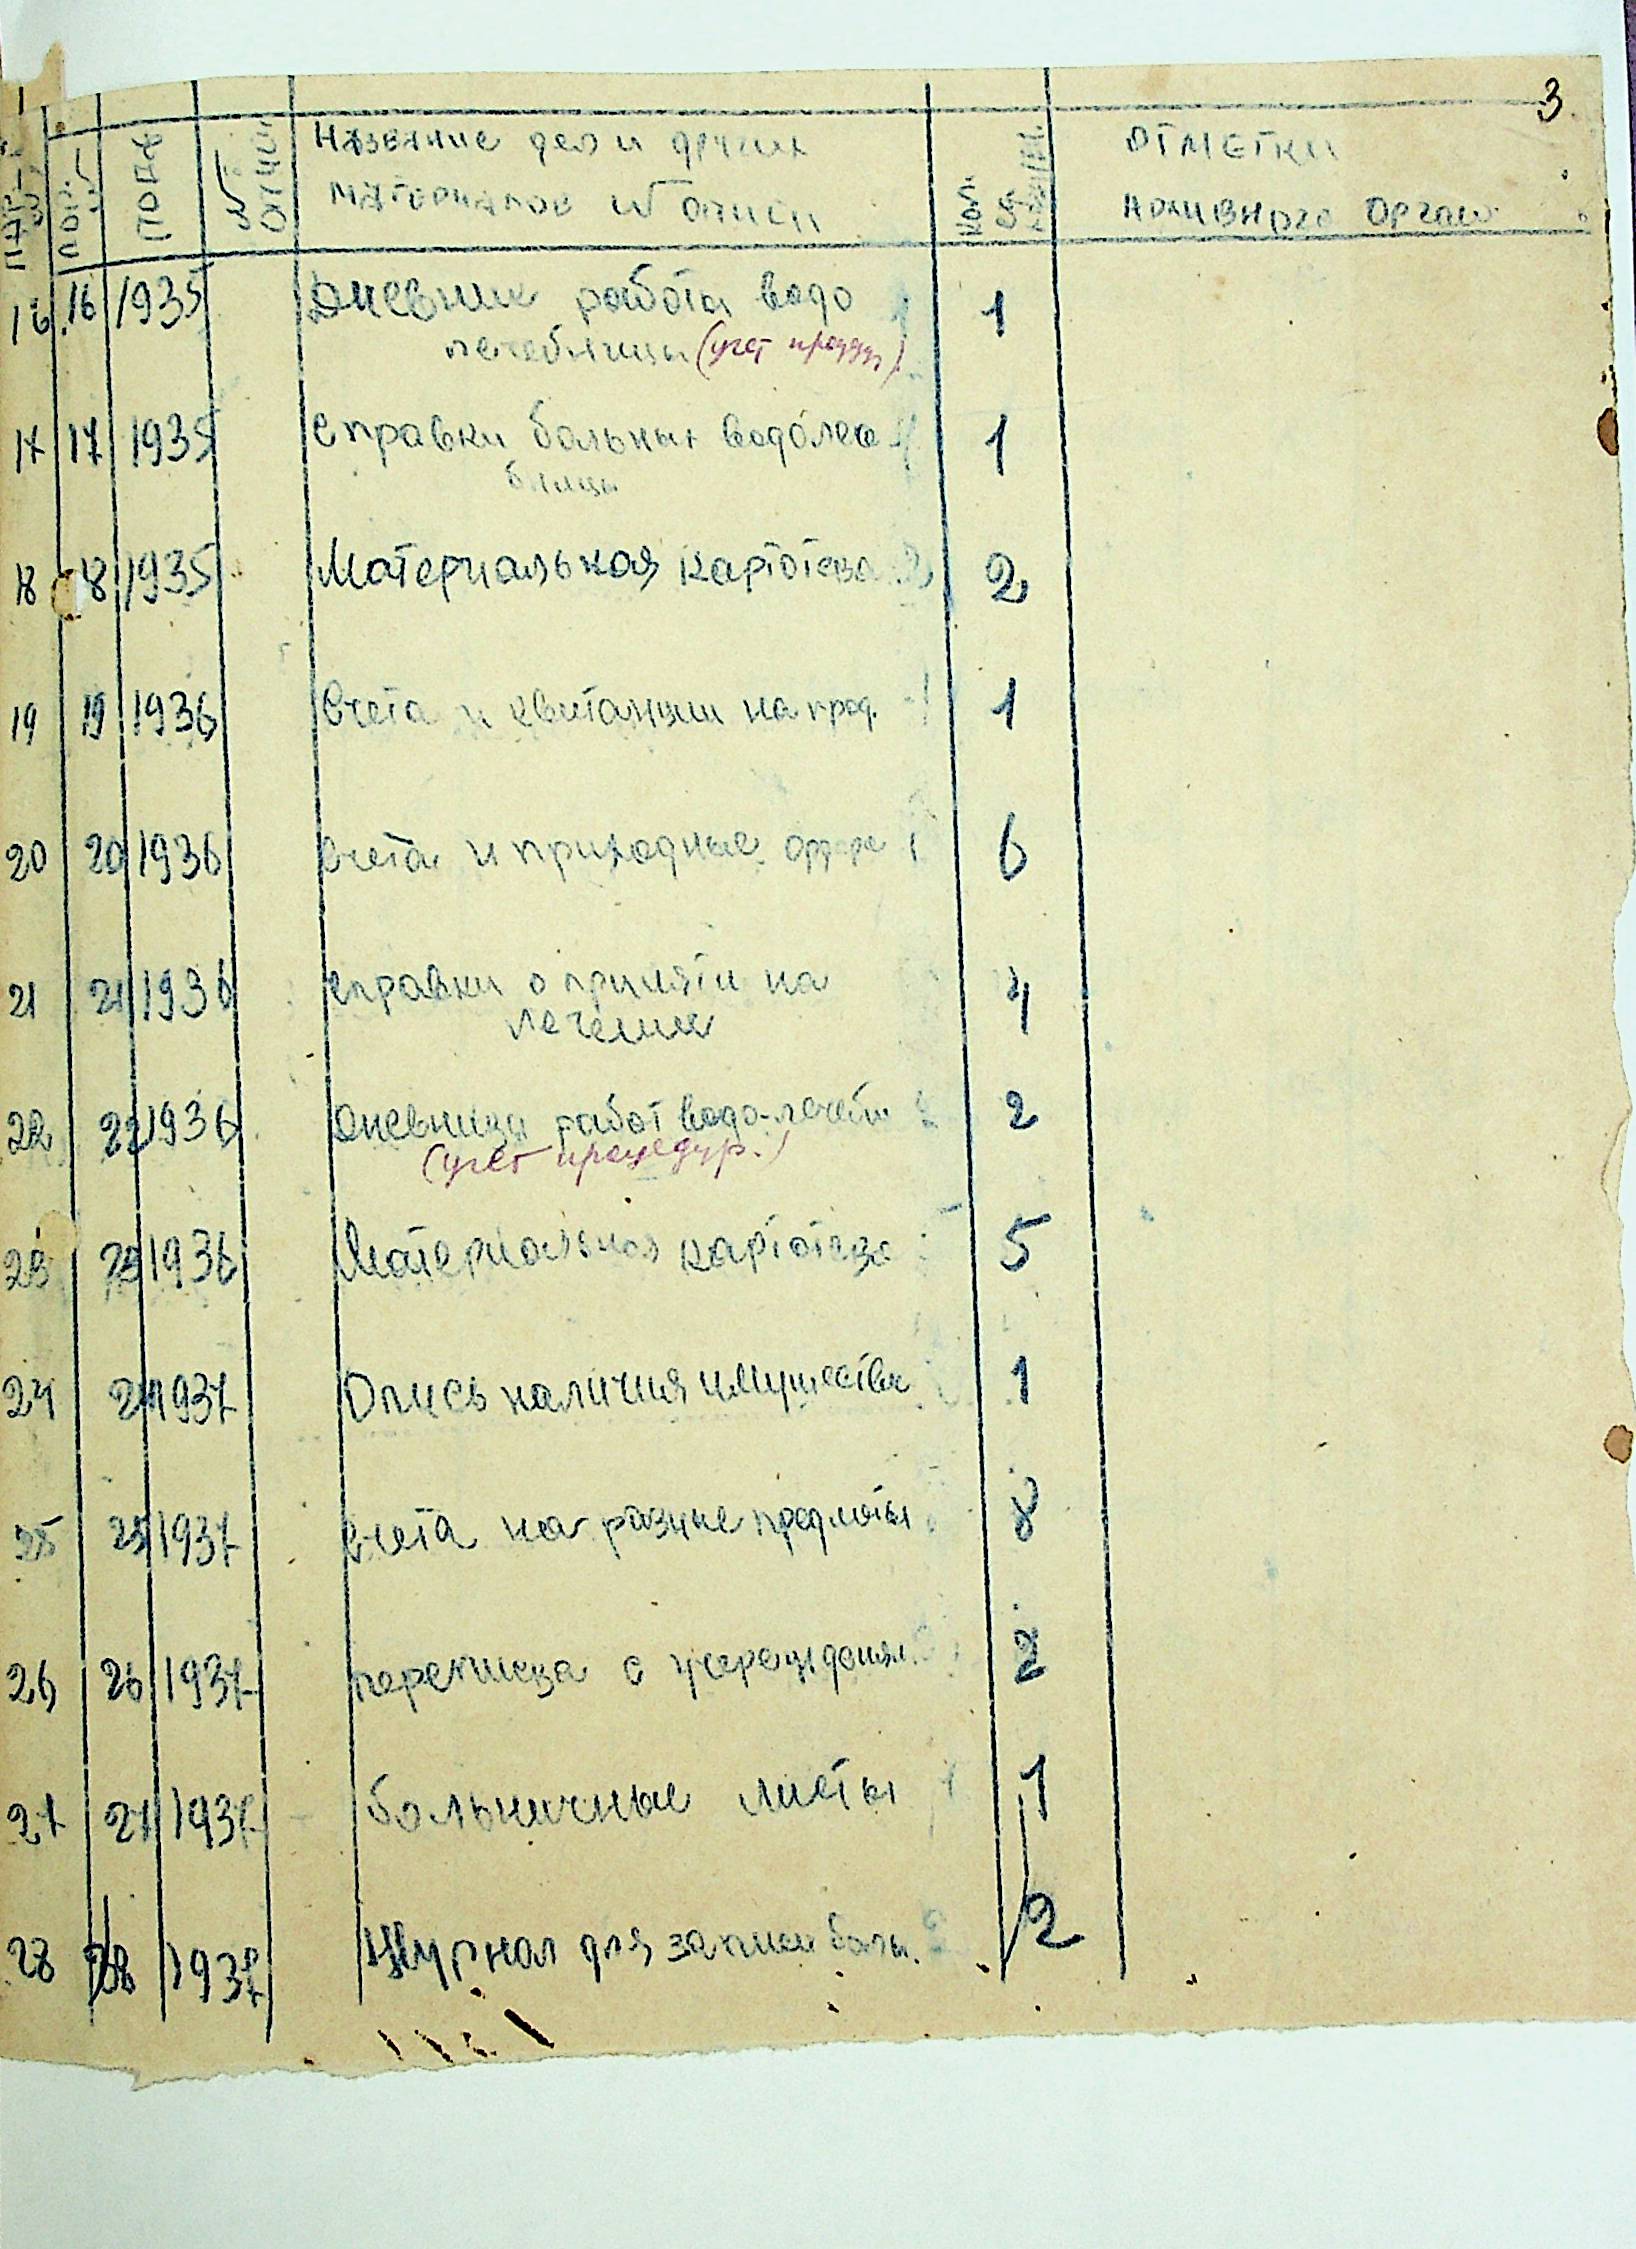 3
Название дел и других
материалов и описи
Кол.
Отметки
архивного орган
16 16 1935 Дневник работы водо 1
лечебницы (учет процедур)
17 17 1935 Справки больных водолече 1
бницы
18 18 1935 Материальная картотека 2
19 19 1936 Счета и квитанции на прод. 1
20 20 1936 Счета и приходные ордера 6
21 21 1936 Справки о приняти на 4
лечение
22 22 1936 Дневники работ водо-лечебн 2
(учет процедур.)
23 23 1936 Материальная картотека 5
24 24 1937 Опись наличия имущества 1
25 25 1937 Счета на разные предметы 8
26 26 1937 переписка с учережденил. 2
27 27 1937 больничные листы 1
28 28 1937 Журнал для записи боль. 2